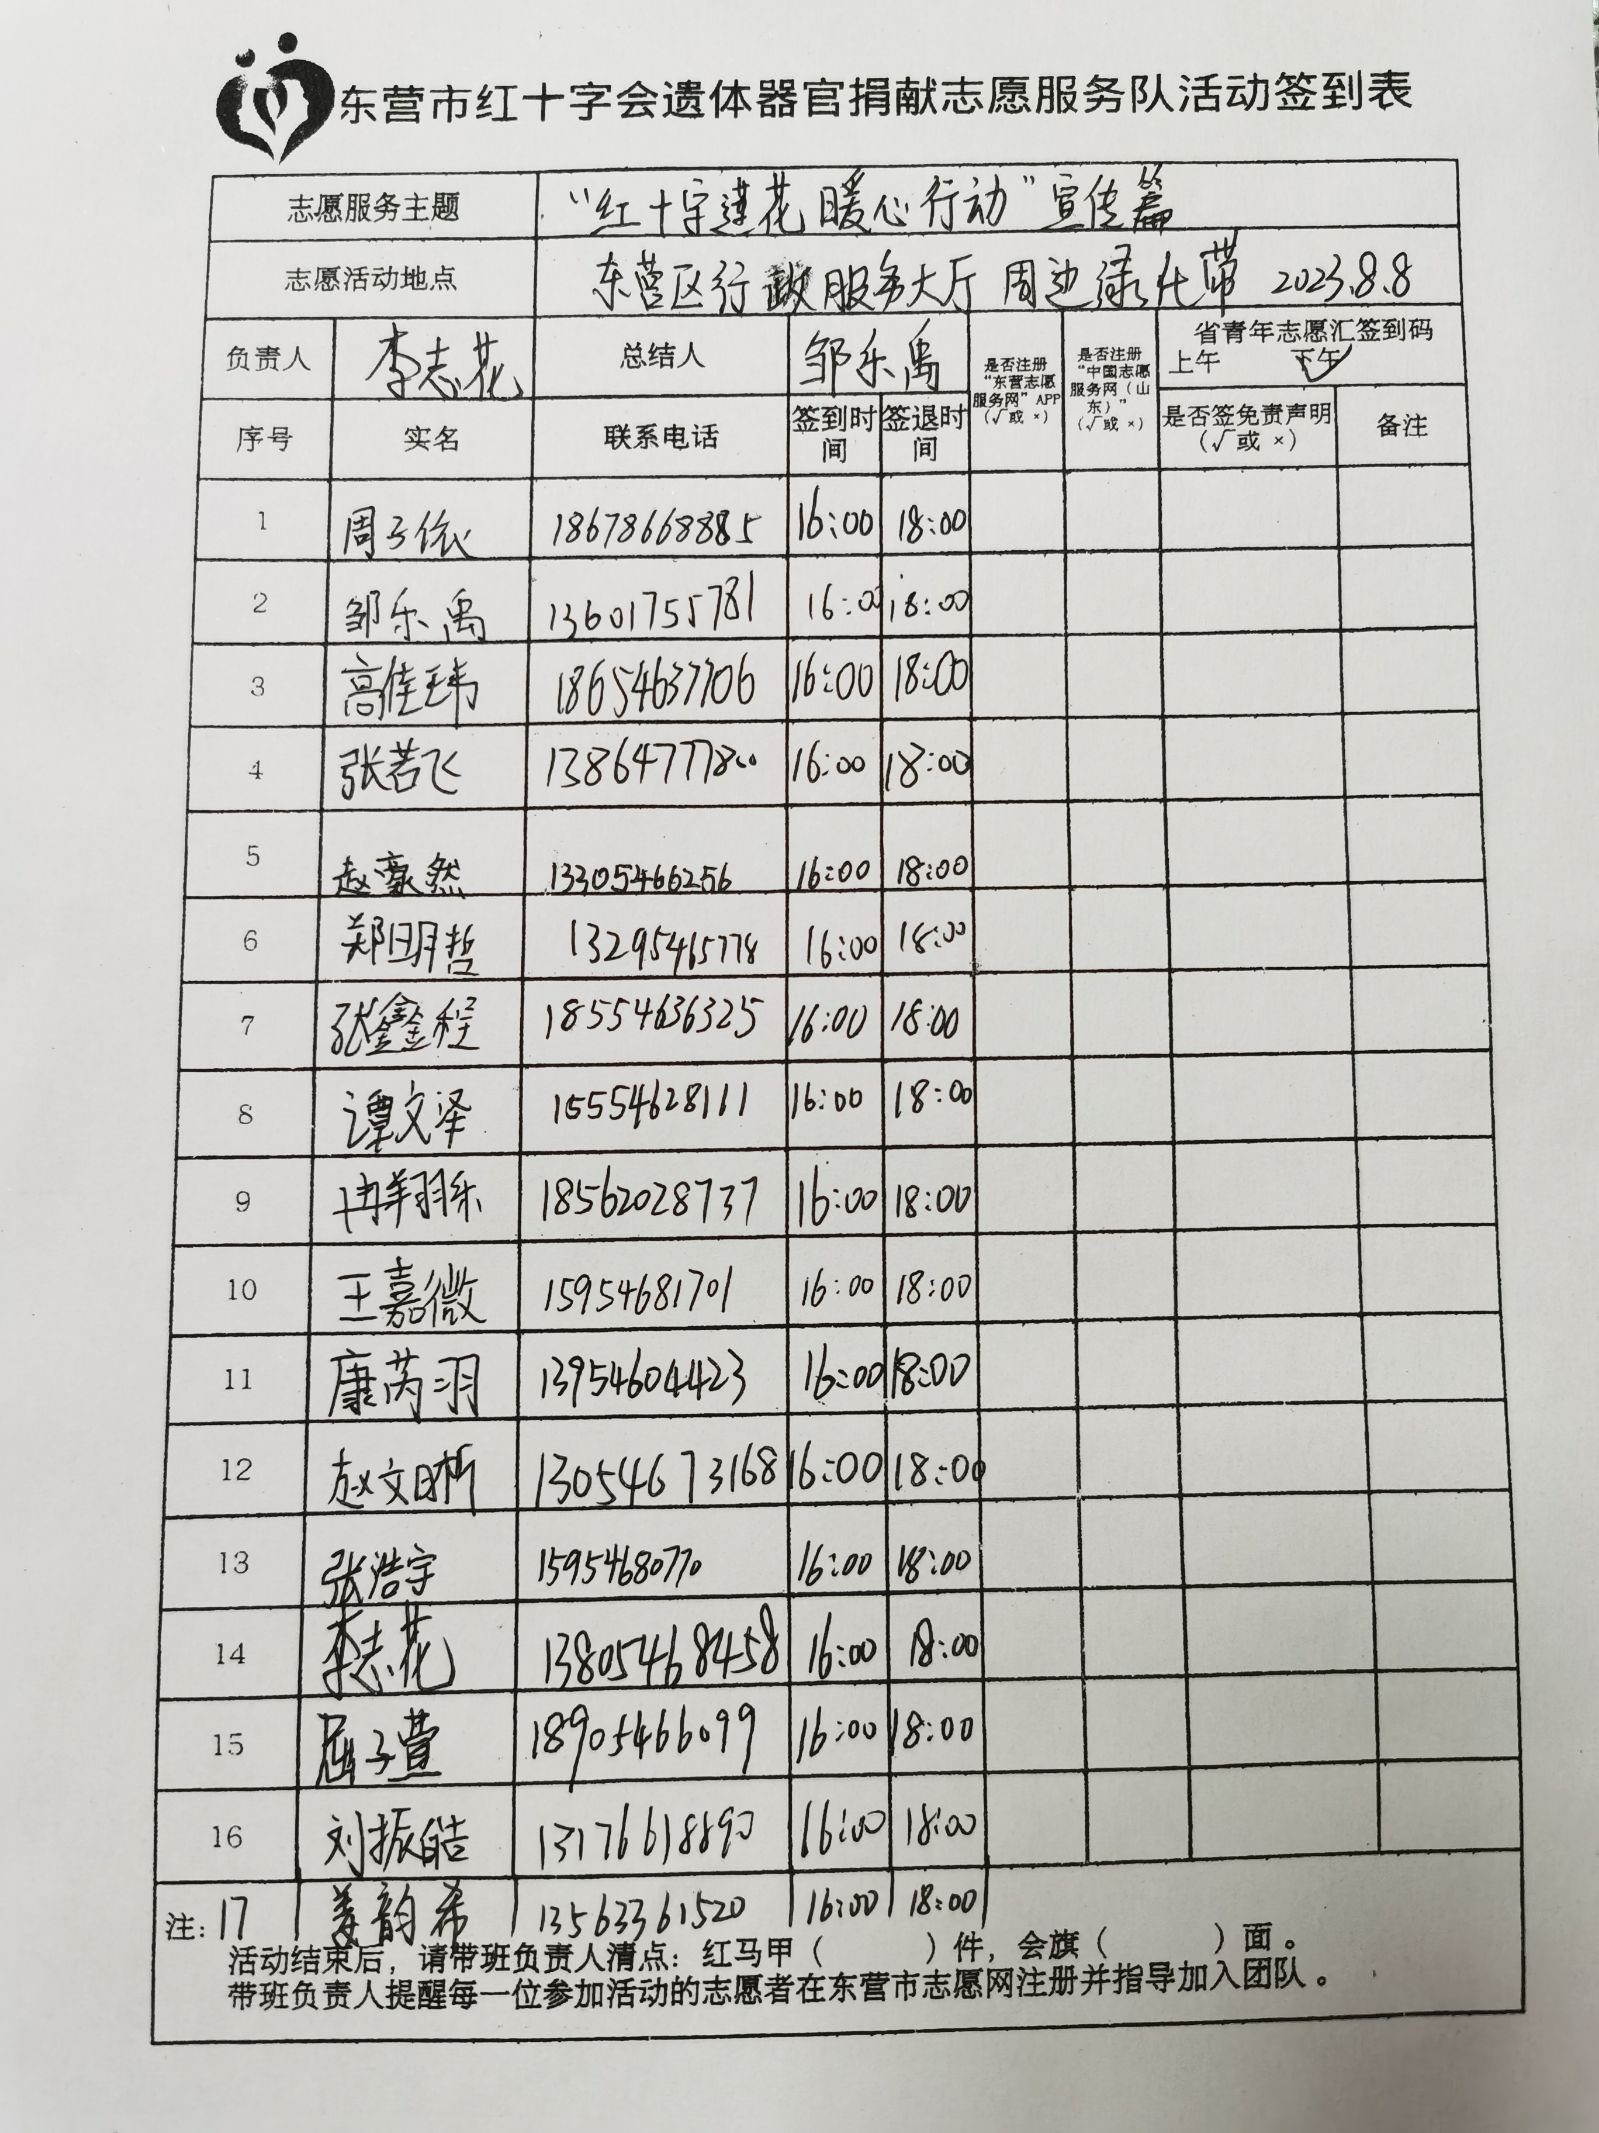 东营市红十字会遗体器官捐献志愿服务队活动签到表
志愿服务主题 “红十字莲花暖心行动”宣传篇
志愿活动地点 东营区行政服务大厅 周边绿化带 2023.8.8
负责人 李志花 总结人 邹乐禹 是否注册“东营志愿服务网”APP(√或 ×) 是否注册“中国志愿服务网(山东)”(√或 ×) 省青年志愿汇签到码 上午 下午✓
序号 实名 联系电话 签到时间 签退时间 是否签免责声明(√或 ×) 备注
1 周子依 18678668885 16:00 18:00
2 邹乐禹 13601755781 16:00 18:00
3 高佳玮 18654637706 16:00 18:00
4 张若飞 13864777800 16:00 18:00
5 赵豪然 13305466256 16:00 18:00
6 郑明哲 13295465778 16:00 18:00
7 张鑫程 18554636325 16:00 18:00
8 谭文泽 15554628111 16:00 18:00
9 冉翔乐 18562028737 16:00 18:00
10 王嘉微 15954681701 16:00 18:00
11 康芮羽 13954604423 16:00 18:00
12 赵文晰 13054673168 16:00 18:00
13 张浩宇 15954680770 16:00 18:00
14 李志花 13805468458 16:00 18:00
15 屈子萱 18905466099 16:00 18:00
16 刘振皓 13176618890 16:00 18:00
注: 17 姜韵希 13563361520 16:00 18:00
活动结束后，请带班负责人清点：红马甲（ ）件，会旗（ ）面。
带班负责人提醒每一位参加活动的志愿者在东营市志愿网注册并指导加入团队。